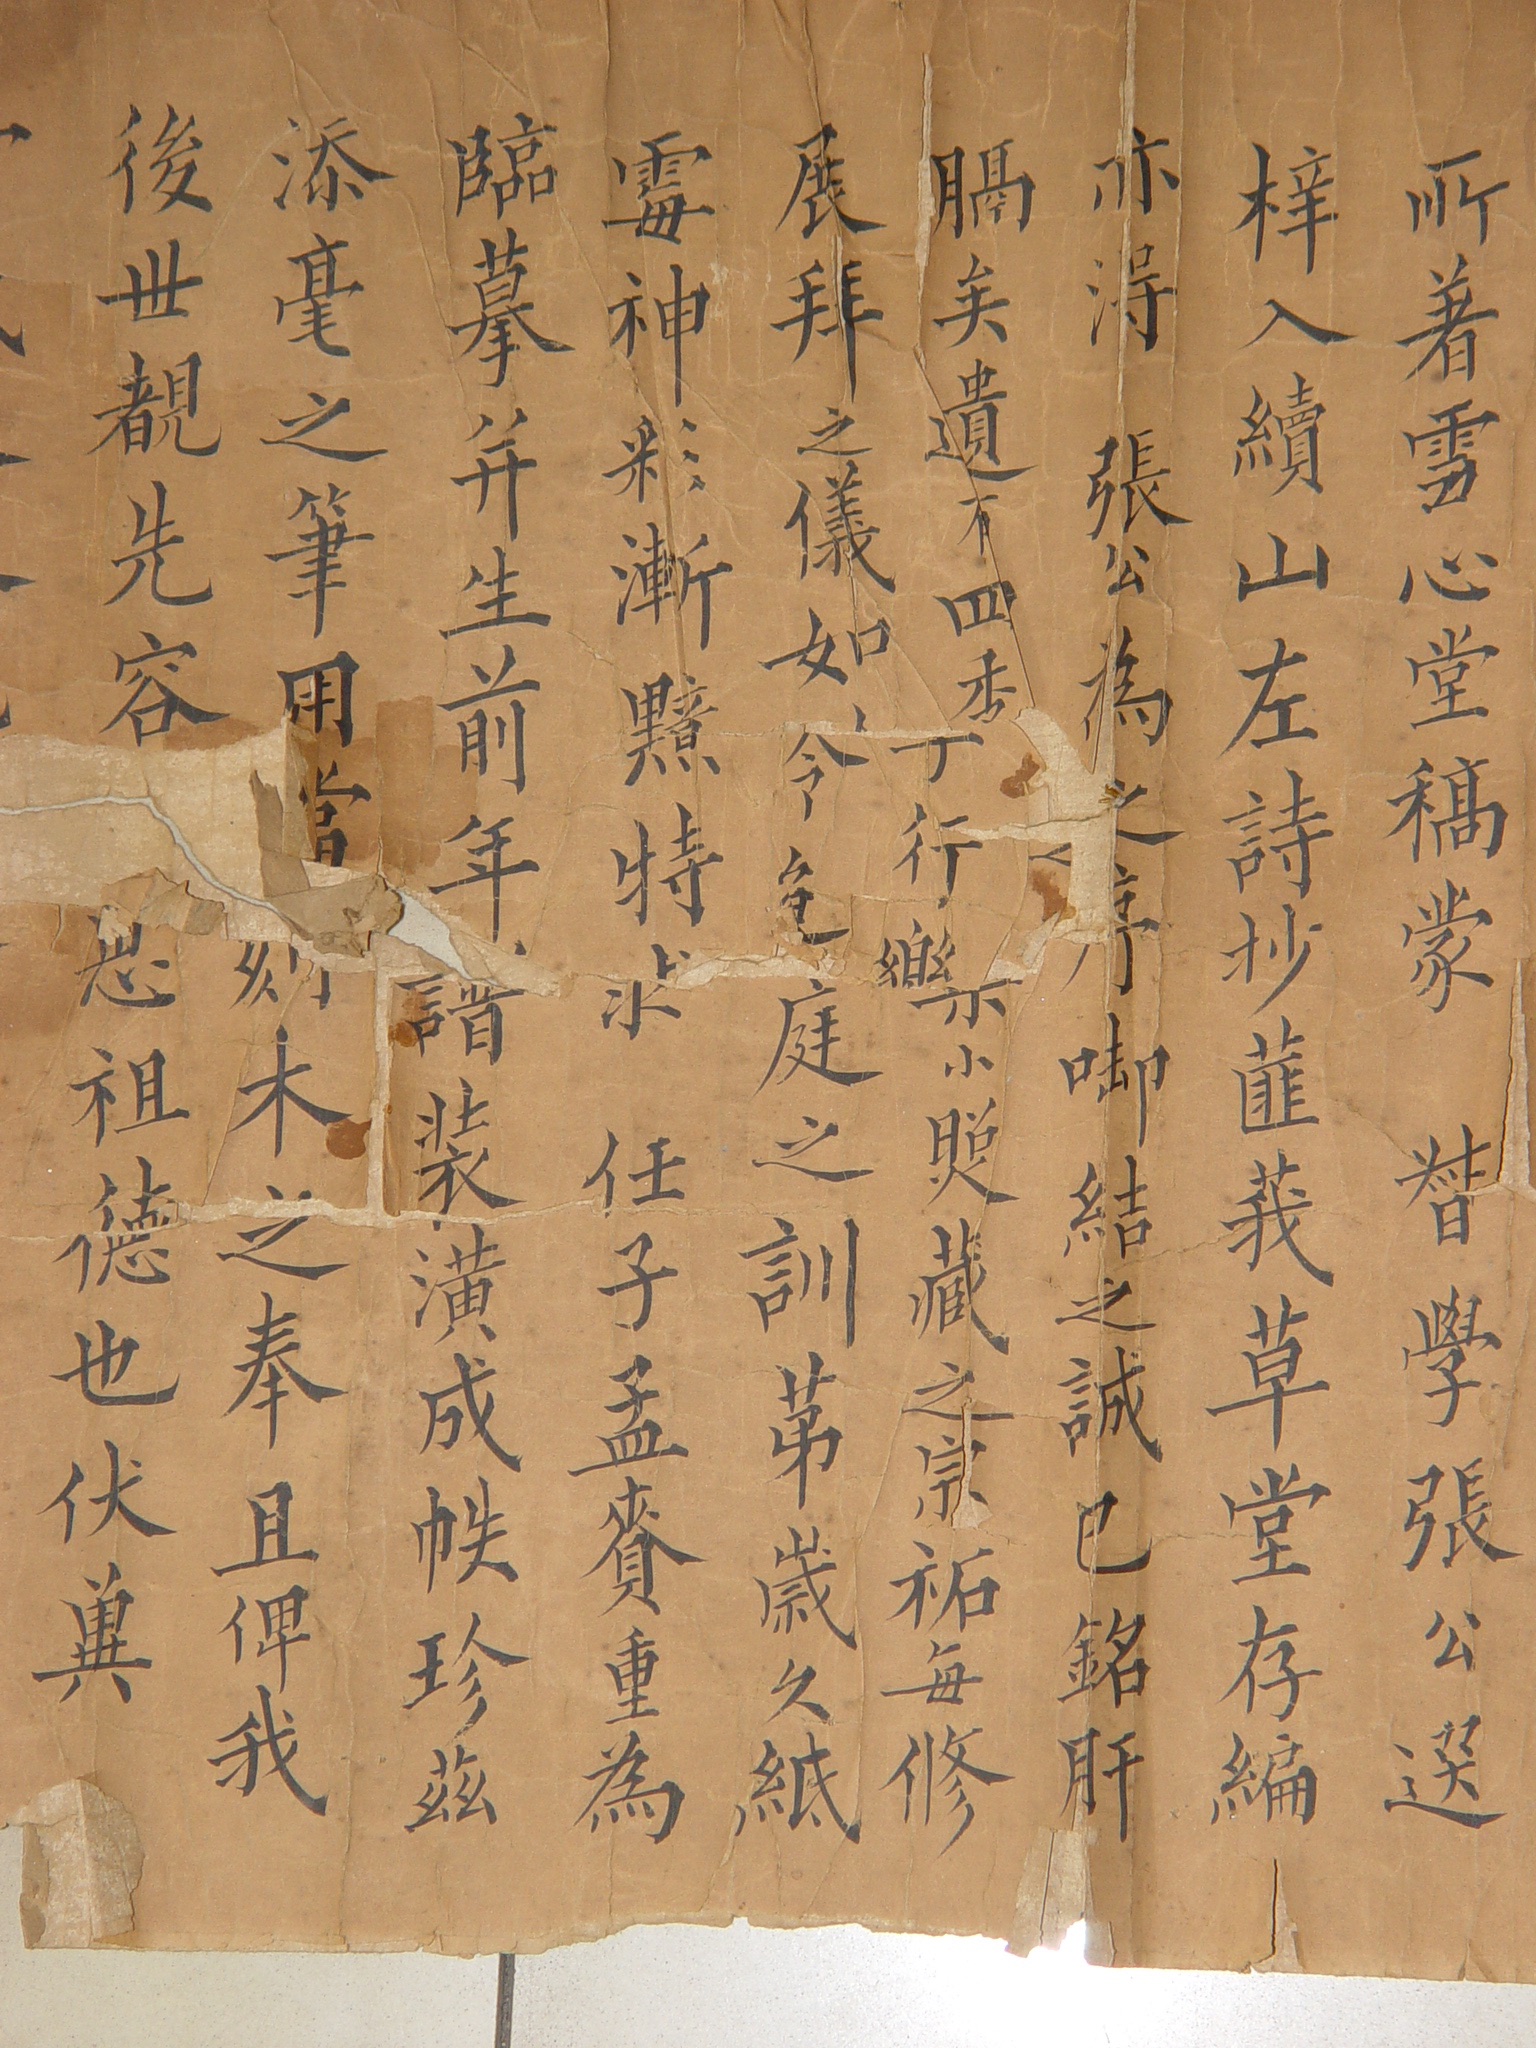 所著雪心堂稿蒙 督學張公選
梓入續山左詩抄䕁莪草堂存編
亦得 張公為之序啣結之誠已銘肝
膈矣遺有四季行樂小照藏之宗祏每修
展拜之儀如令色庭之訓苐歲久紙
霉神彩漸黯特求 任子孟賚重為
臨摹并生前年譜裝潢成帙珍茲
添毫之筆用當刻木之奉且俾我
後世覩先容思祖德也伏冀